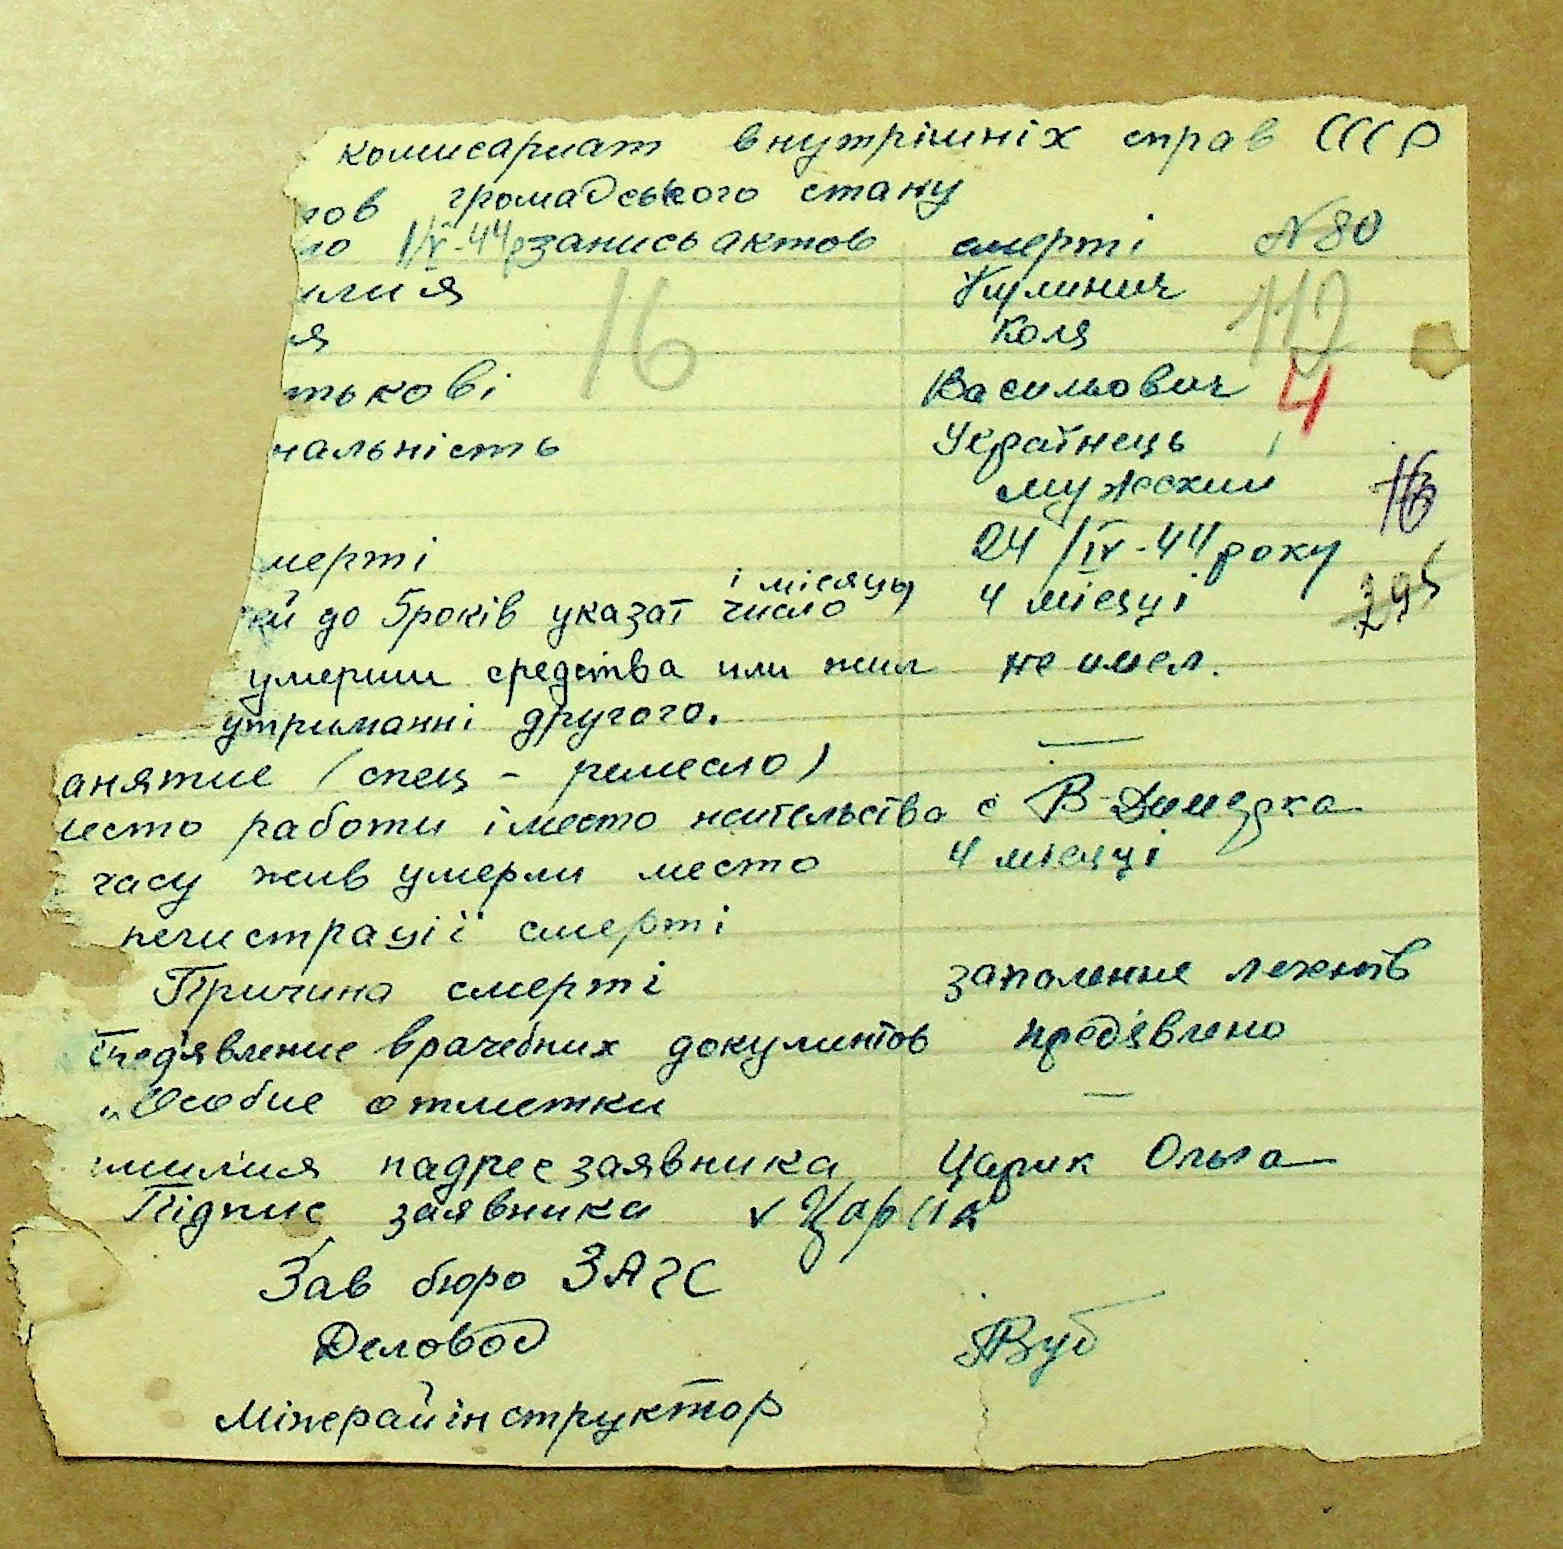 комисариат внутрішніх справ СССР
тов громадського стану
но 1/V-44р запись актов смерті N 80
илия Кулинич 112
я Коля
16
тькові Васильович 4
нальність Українець
мужеский 16
мерті 24/IV-44 року
і місяць 295
тей до 5 років указат число 4 місяці
умерши средства или жил не имел.
утриманні другого.
анятие (спец - ремесло) —
место работи і место жительства с В-Димерка
часу жив умерли место 4 місяці
регистрації смерті
Причина смерті запаление легків
Предявление врачебних документов предявлено
„Особие отметки —
амилия падрес заявника Царик Ольга
Підпис заявника v Царик
Зав бюро ЗАГС
Деловод
Мінрайінструктор